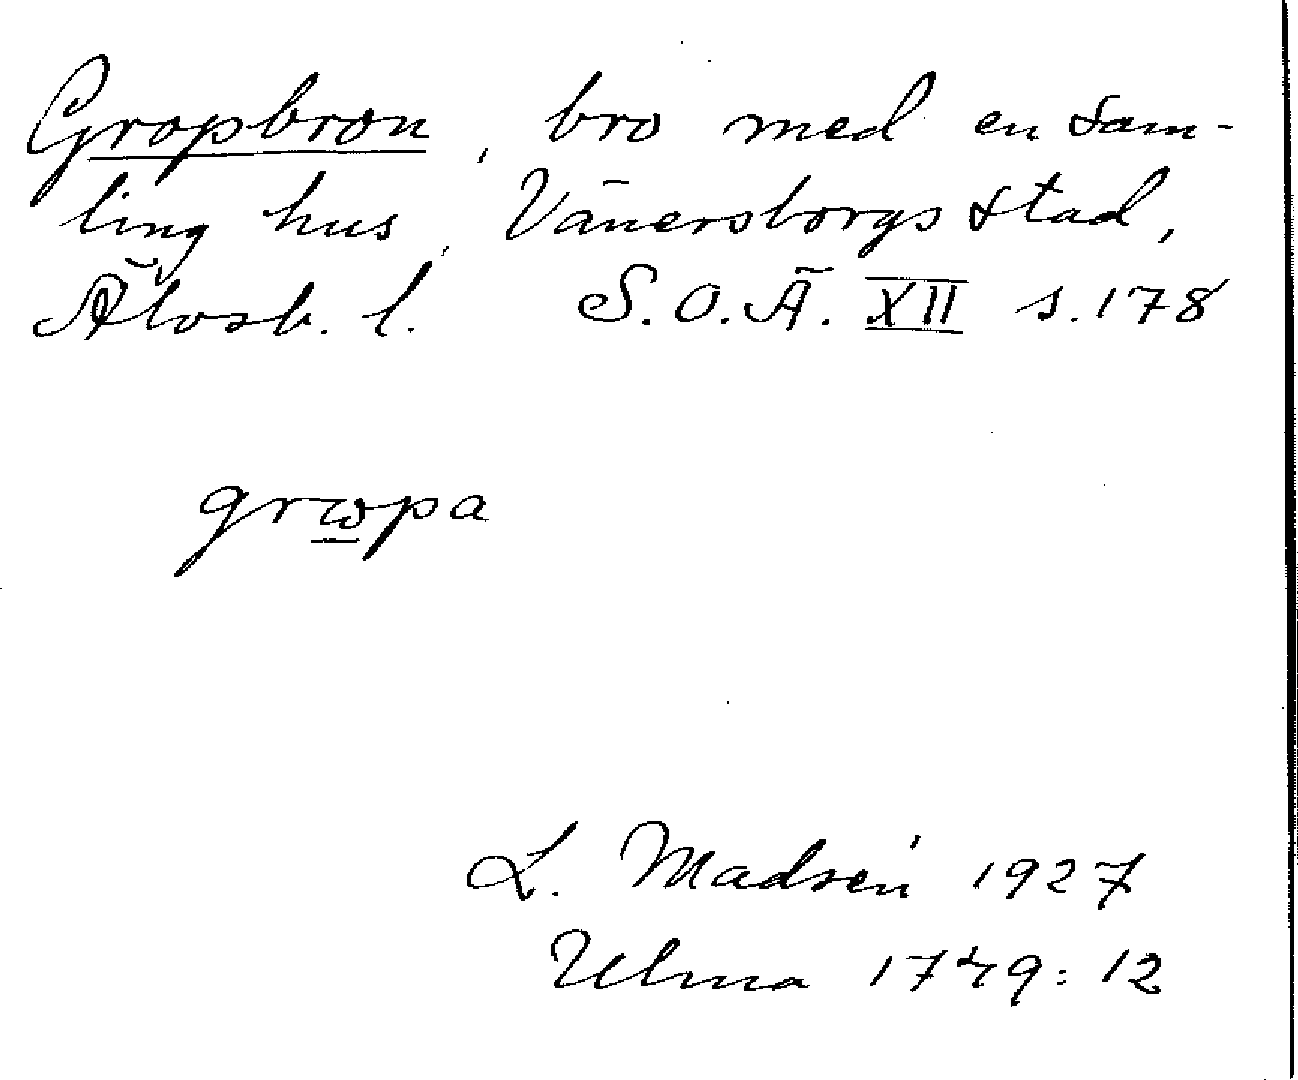 Gropbron, bro med en sam-
ling hus, Vänersborgs stad,
Älvsb. l. S.O.Ä. XII s. 178
grωpa
L. Madsén 1927
Ulma 1749:12